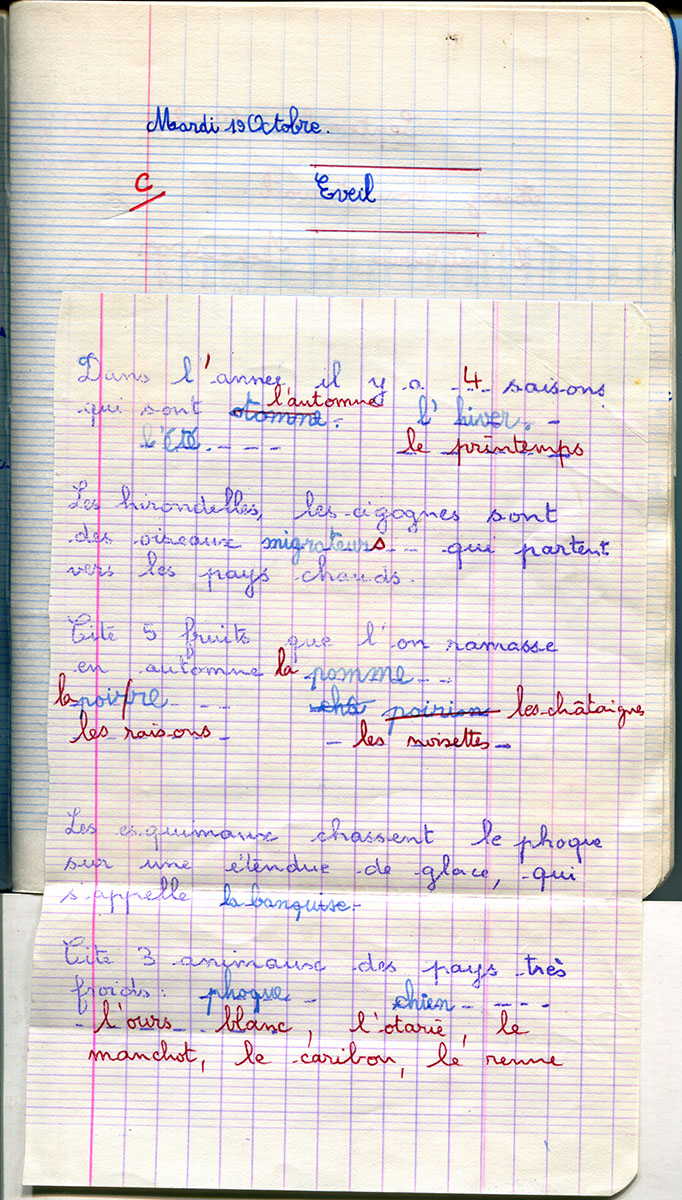 Mardi 19 Octobre.
C
Eveil
Dans l'année il y a 4 saisons
qui sont otomne l'automne. l'hiver.
l'été le printemps
Les hirondelles, les cigognes sont
des oiseaux migrateurs qui partent
vers les pays chauds.
Cite 5 fruits que l'on ramasse
en automne la pomme
la poire chù poirion les châtaignes
les raisons les noisettes
Les esquimaux chassent le phoque
sur une étendue de glace, qui
s'appelle la banquise.
Cite 3 animaux des pays très
froids : phoque chien
l'ours blanc, l'otarie, le
manchot, le caribou, le renne